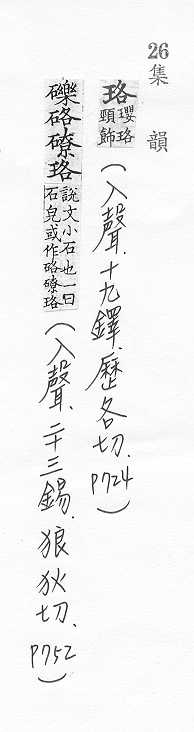 26
集韻
珞瓔珞頸飾(入聲.十九鐸.歷各切.P724)
礫硌磟珞說文小石也一曰石皃或作硌磟珞(入聲.二十三錫.狼狄切.P752)